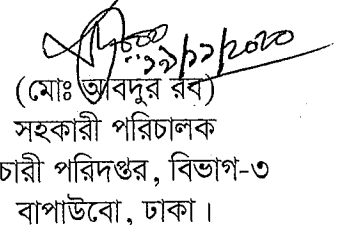 ১৯/১১/২০২০
(মোঃ আবদুর রব)
সহকারী পরিচালক
চারী পরিদপ্তর, বিভাগ-৩
বাপাউবো, ঢাকা।